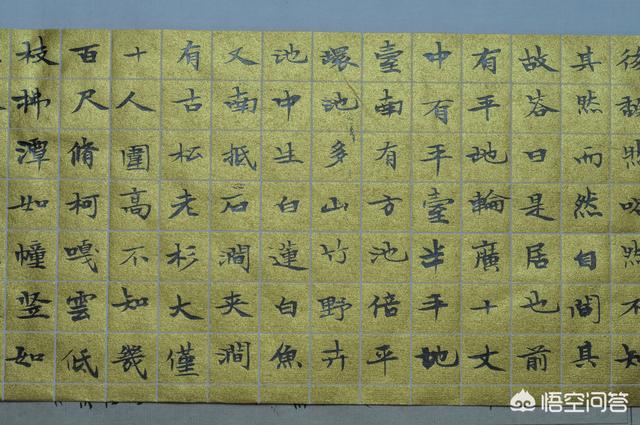 其然而然自問其
故荅曰是居也前
有平地輪廣十丈
中有平臺半平地
臺南有方池倍平
環池多山竹野卉
池中生白蓮白魚
又南抵石澗夾澗
有古松老杉大僅
十人圍高不知幾
百尺脩柯嘎雲低
枝拂潭如幢竪如
悟空问答